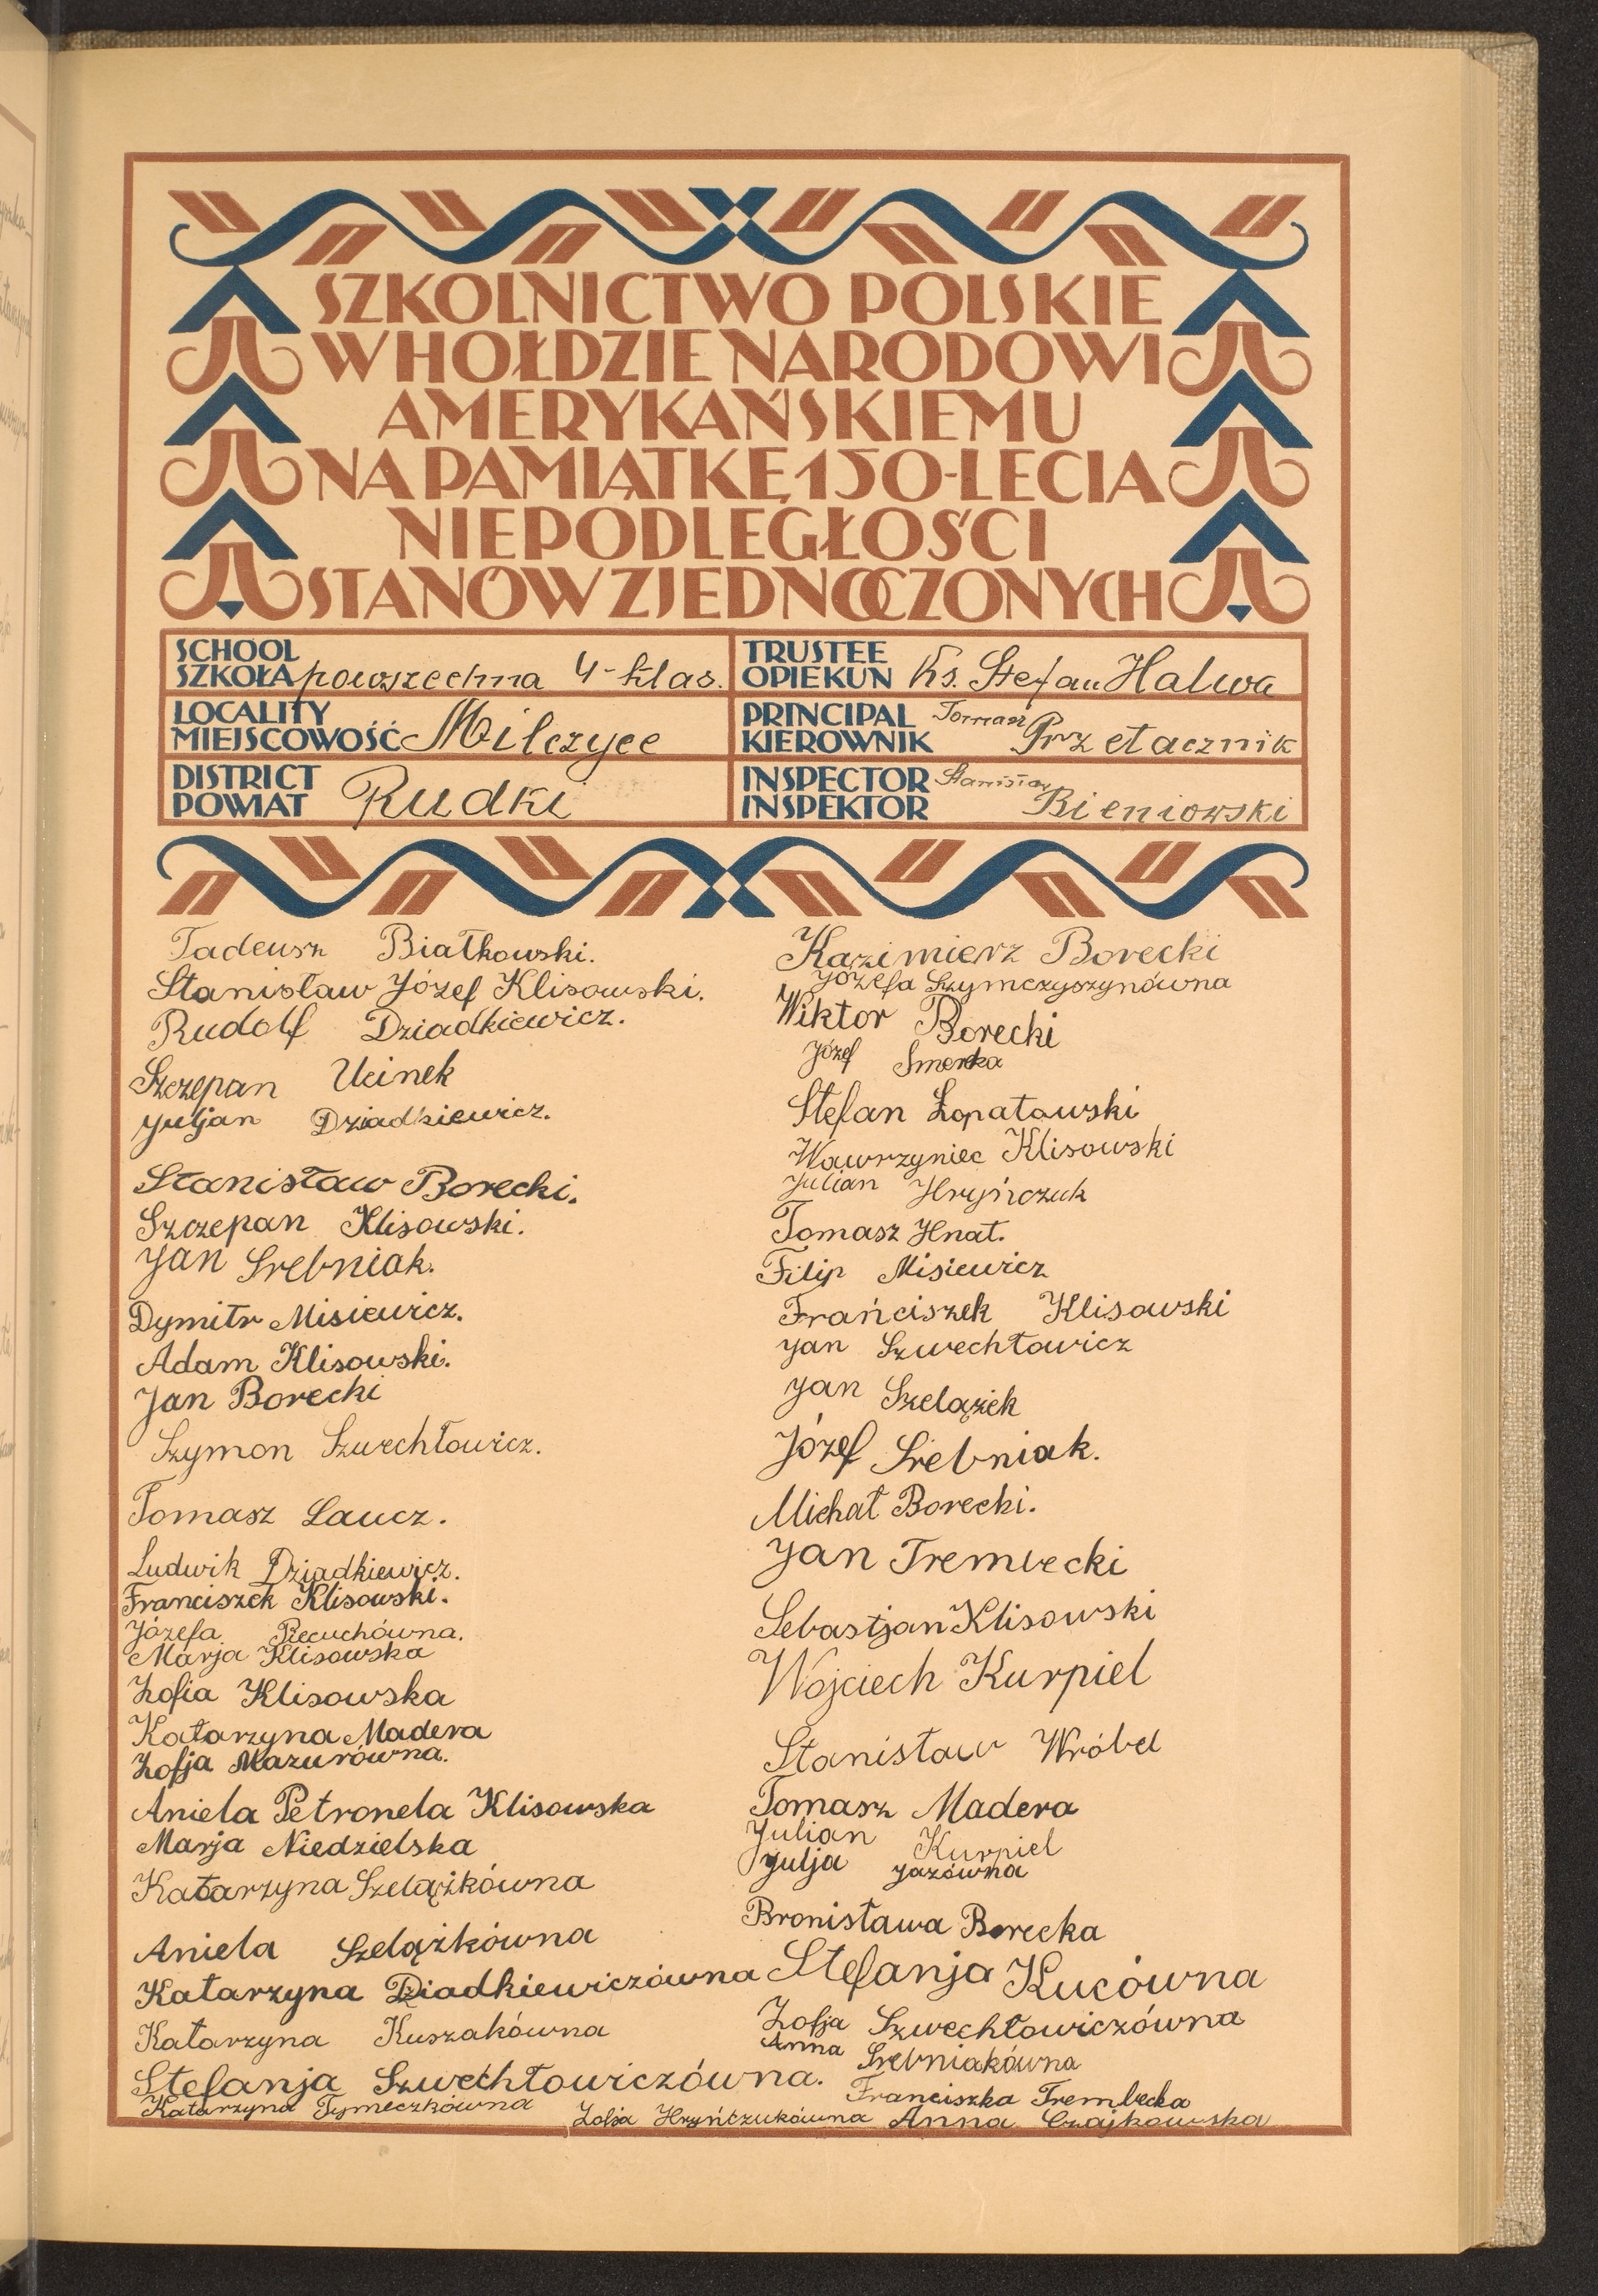 SZKOLNICTWO POLSKIE
W HOŁDZIE NARODOWI
AMERYKAŃSKIEMU
NA PAMIĄTKĘ 150-LECIA
NIEPODLEGŁOŚCI
STANÓW ZJEDNOCZONYCH
SCHOOL
SZKOŁA powszechna 4-klas.
TRUSTEE
OPIEKUN Ks. Stefan Halwa
LOCALITY
MIEJSCOWOŚĆ Milczyce
PRINCIPAL
KIEROWNIK Tomasz Przetacznik
DISTRICT
POWIAT Rudki
INSPECTOR
INSPEKTOR Stanisław Bieniowski
Tadeusz Białkowski.
Stanisław Józef Klisowski.
Rudolf Dziadkiewicz.
Szczepan Ucinek
Juljan Dziadkiewicz.
Stanisław Borecki.
Szczepan Klisowski.
Jan Srebniak.
Dymitr Misiewicz.
Adam Klisowski.
Jan Borecki
Szymon Szwechłowicz.
Tomasz Laucz.
Ludwik Dziadkiewicz.
Franciszek Klisowski.
Józefa Recuchówna.
Marja Klisowska
Zofia Klisowska
Katarzyna Madera
Zofja Mazurówna.
Aniela Petronela Klisowska
Marja Niedzielska
Katarzyna Szelążkówna
Aniela Szelążkówna
Katarzyna Dziadkiewiczówna
Katarzyna Kuszakówna
Stefanja Szwechłowiczówna.
Katarzyna Tymeczkówna
Zofja Hryńczukówna
Kazimierz Borecki
Józefa Szymczyszynówna
Wiktor Borecki
Józef Smerka
Stefan Łopatowski
Wawrzyniec Klisowski
Julian Hryńczuk
Tomasz Hnat.
Filip Misiewicz
Frańciszek Klisowski
Jan Szwechłowicz
Jan Szelążek
Józef Srebniak.
Michał Borecki.
Jan Trembecki
Sebastjan Klisowski
Wojciech Kurpiel
Stanisław Wróbel
Tomasz Madera
Julian Kurpiel
Julja Jazówna
Bronisława Borecka
Stefanja Kucówna
Zofja Szwechłowiczówna
Anna Srebniakówna
Franciszka Trembecka
Anna Czajkowska